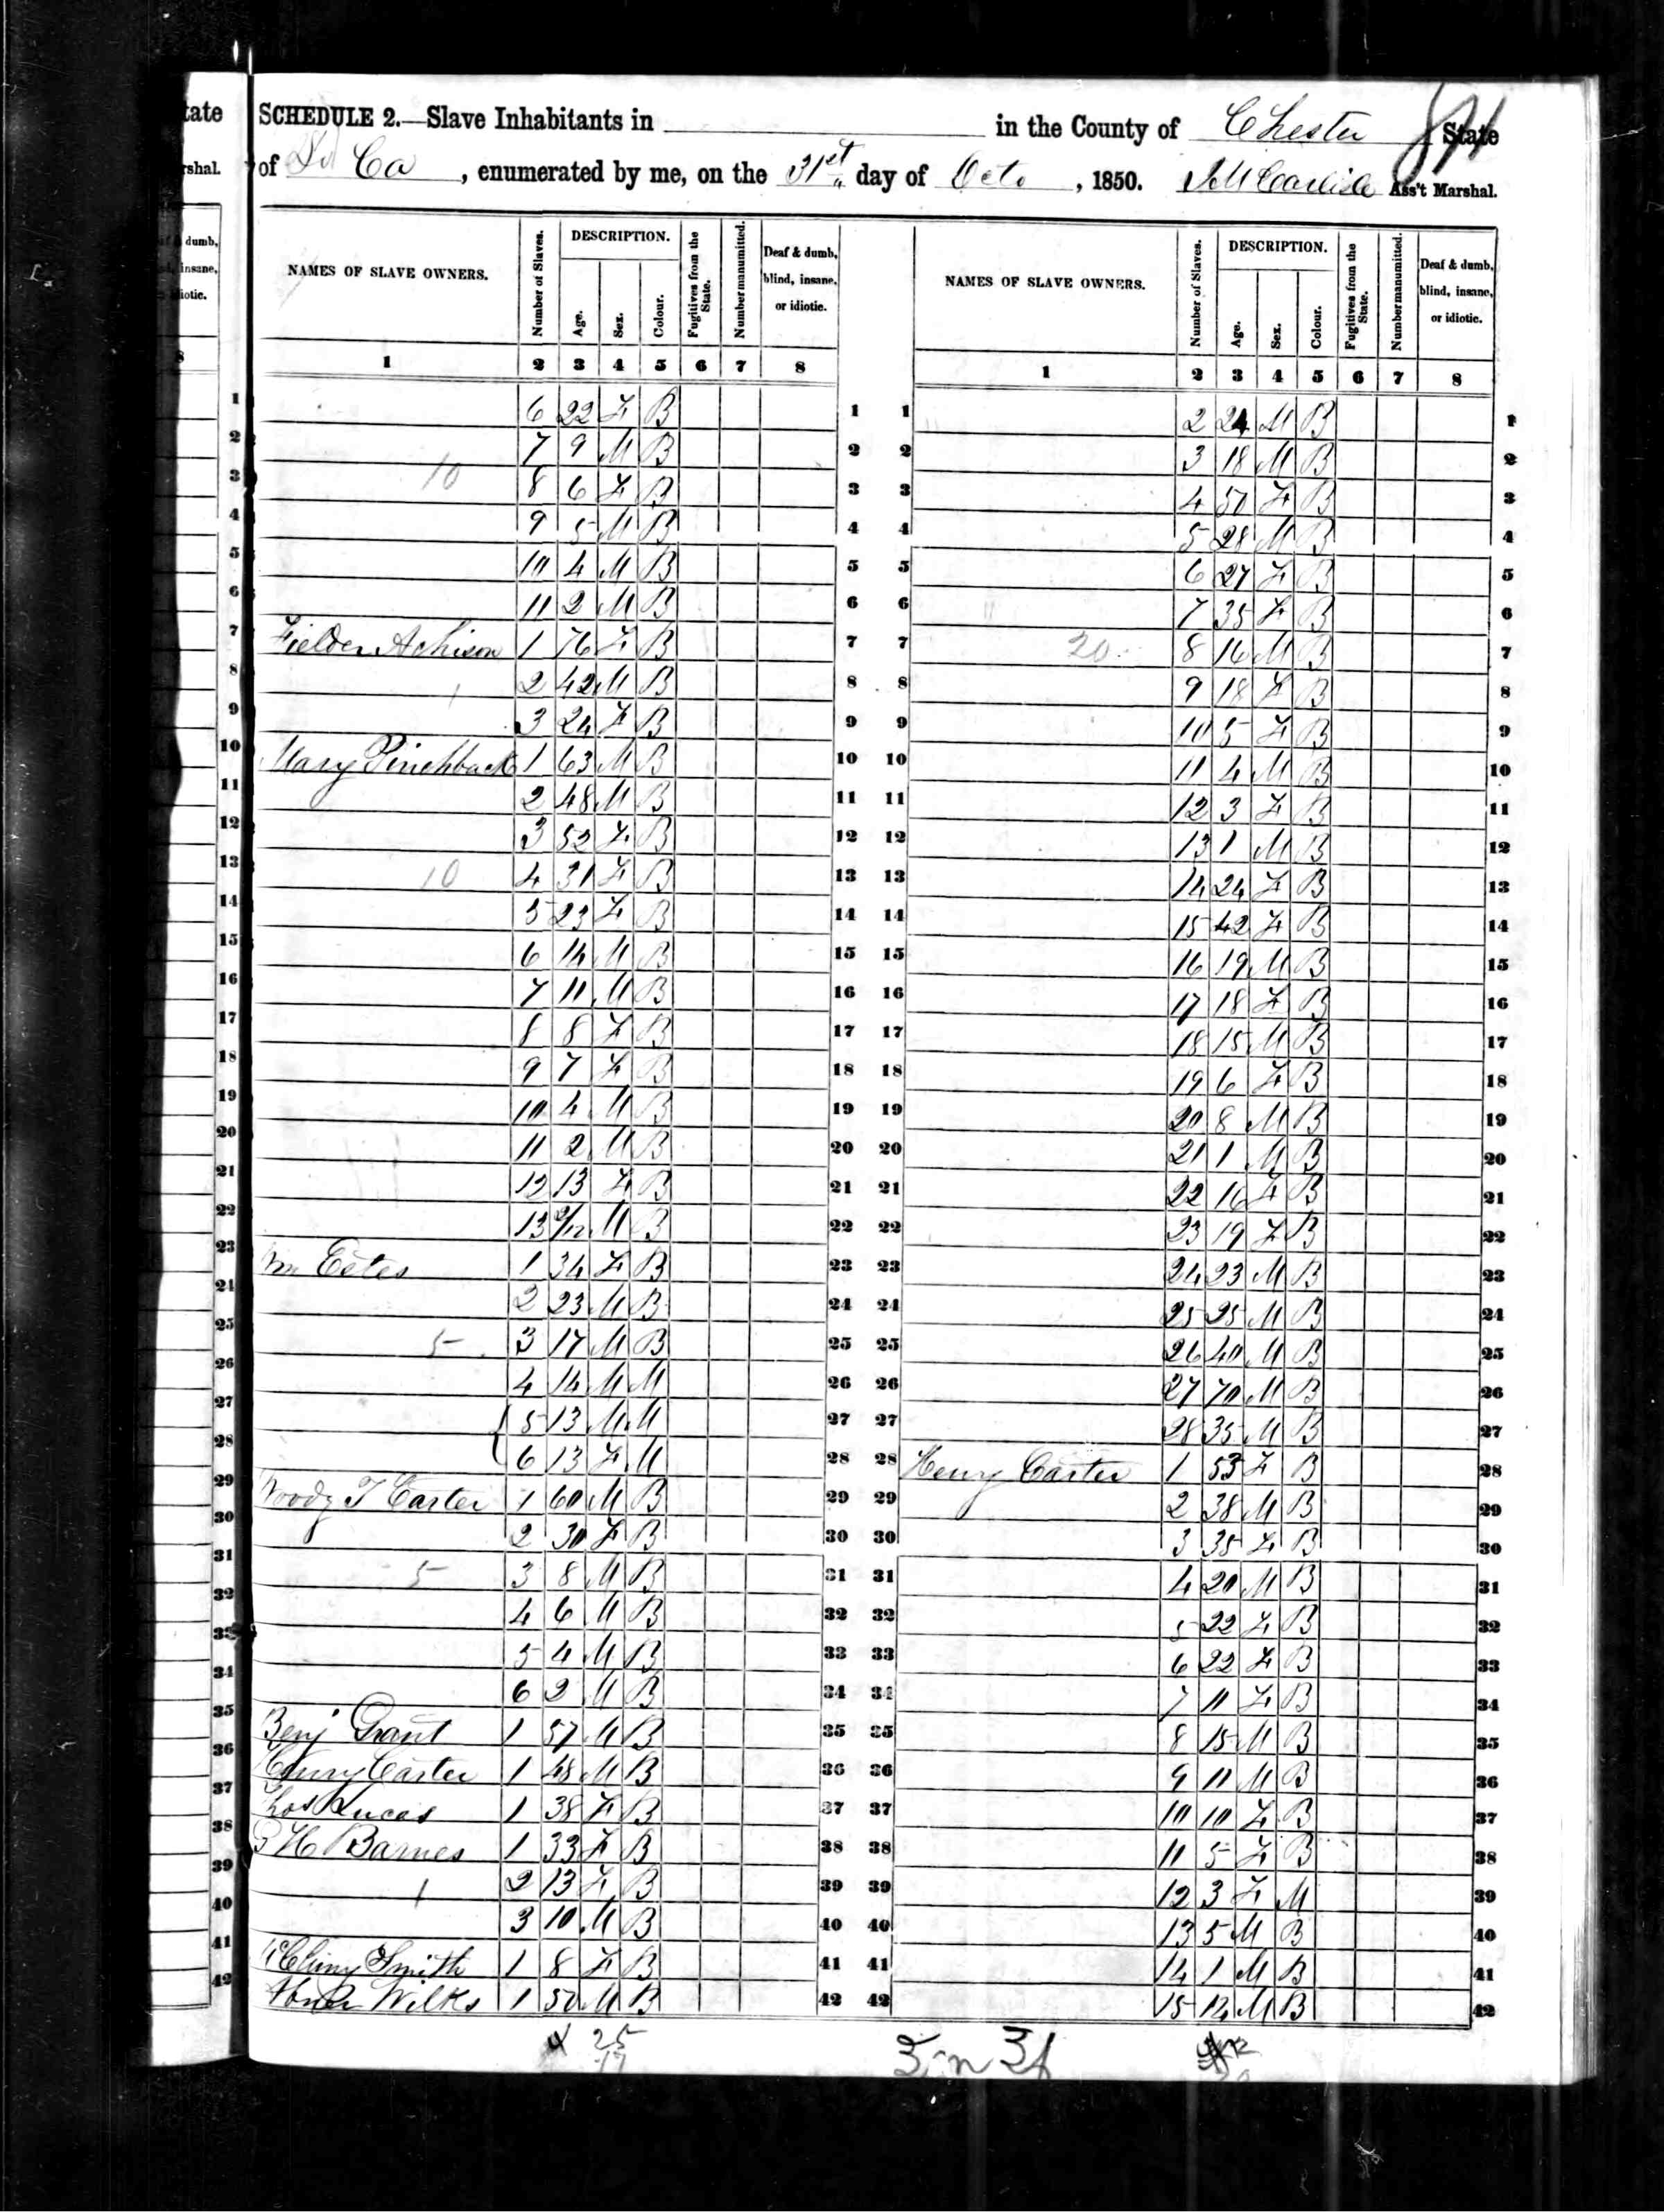 SCHEDULE 2.—Slave Inhabitants in in the County of Chester State
of So Ca, enumerated by me, on the 31st day of Octo, 1850. Ass't Marshal.
NAMES OF SLAVE OWNERS. Number of Slaves. DESCRIPTION. Age. Sex. Colour. Fugitives from the State. Number manumitted. Deaf & dumb, blind, insane, or idiotic.
NAMES OF SLAVE OWNERS. Number of Slaves. DESCRIPTION. Age. Sex. Colour. Fugitives from the State. Number manumitted. Deaf & dumb, blind, insane, or idiotic.
1 2 3 4 5 6 7 8
1 2 3 4 5 6 7 8
1 6 22 F B 1
2 7 9 M B 2
3 10 8 6 F B 3
4 9 5 M B 4
5 10 4 M B 5
6 11 2 M B 6
7 Fielder Achison 1 76 F B 7
8 2 42 M B 8
9 3 24 F B 9
10 Mary Pinchback 1 63 M B 10
11 2 48 M B 11
12 3 52 F B 12
13 10 4 31 F B 13
14 5 23 F B 14
15 6 14 M B 15
16 7 11 M B 16
17 8 8 F B 17
18 9 7 F B 18
19 10 4 M B 19
20 11 2 M B 20
21 12 13 F B 21
22 13 2/12 M B 22
23 Wm Estes 1 34 F B 23
24 2 23 M B 24
25 5 3 17 M B 25
26 4 14 M M 26
27 5 13 M M 27
28 6 13 F M 28
29 Woody T Carter 1 60 M B 29
30 2 30 F B 30
31 5 3 8 M B 31
32 4 6 M B 32
33 5 4 M B 33
34 6 2 M B 34
35 Benj Grant 1 57 M B 35
36 Henry Carter 1 48 M B 36
37 Thos Lucas 1 38 F B 37
38 H Barnes 1 33 F B 38
39 1 2 13 F B 39
40 3 10 M B 40
41 Smith 1 8 F B 41
42 Abner Wilks 1 50 M B 42
1 2 24 M B 1
2 3 18 M B 2
3 4 50 F B 3
4 5 28 M B 4
5 6 27 F B 5
6 7 35 F B 6
7 20 8 16 M B 7
8 9 18 F B 8
9 10 5 F B 9
10 11 4 M B 10
11 12 3 F B 11
12 13 1 M B 12
13 14 24 F B 13
14 15 42 F B 14
15 16 19 M B 15
16 17 18 F B 16
17 18 15 M B 17
18 19 6 F B 18
19 20 8 M B 19
20 21 1 M B 20
21 22 16 F B 21
22 23 19 F B 22
23 24 23 M B 23
24 25 25 M B 24
25 26 40 M B 25
26 27 70 M B 26
27 28 35 M B 27
28 Henry Carter 1 53 F B 28
29 2 38 M B 29
30 3 35 F B 30
31 4 20 M B 31
32 5 22 F B 32
33 6 22 F B 33
34 7 11 F B 34
35 8 15 M B 35
36 9 11 M B 36
37 10 10 F B 37
38 11 5 F B 38
39 12 3 F M 39
40 13 5 M B 40
41 14 1 M B 41
42 15 14 M B 42
25
17